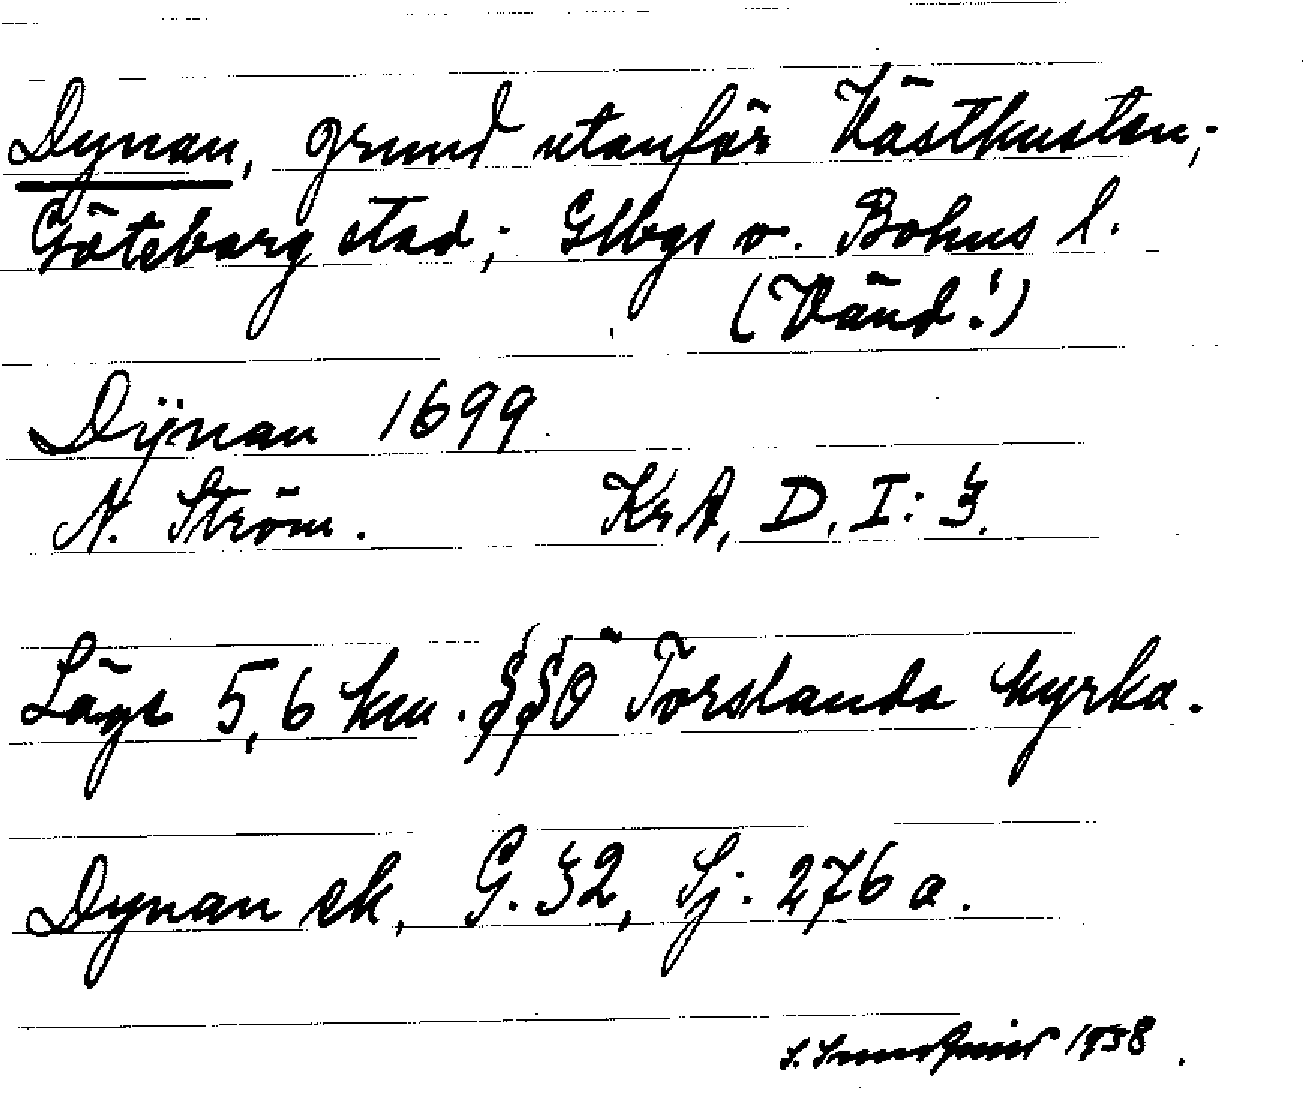 Dynan, grund utanför Västkusten;
Göteborg stad; Gtbgs o. Bohus l.
(Vänd!)
Dÿnan 1699.
N. Ström. KrA, D, I: 3.
Läge 5,6 km. SSÖ Torslanda kyrka.
Dynan ek, G. 32, Sj: 276 a.
1938.